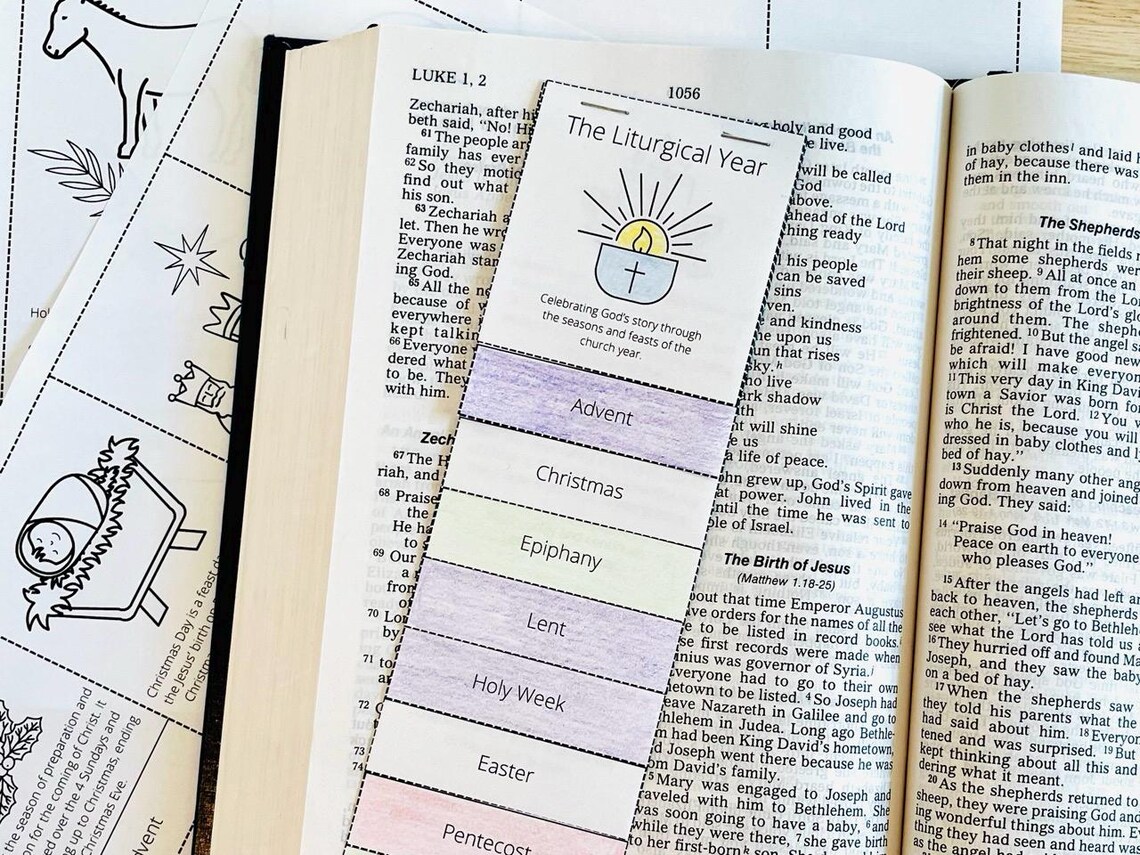 LUKE 1, 2
1056
Zechariah, after
beth said, "No!
61 The people
family has ever
62 So they
find out what
his son.
63 Zechariah
let. Then he
Everyone was
Zechariah
ing God.
65 All the
because of
everywhere
kept
66 Everyone
dered what
to be. They
with him.
67 The
riah, and
68 Praise
the
He
to
69 Our
a
from
of
70
by
71
72
73
74
The Liturgical Year
Celebrating God's story through
the seasons and feasts of the
church year.
Advent
Christmas
Epiphany
Lent
Holy Week
Easter
Pentecost
holy and good
live.
will be called
God
above.
ahead of the Lord
thing ready
his people
can be saved
sins
and kindness
upon us
that rises
sky. h
live
dark shadow
will shine
us
a life of peace.
grew up, God's Spirit gave
power. John lived in the
until the time he was sent to
of Israel.
The Birth of Jesus
(Matthew 1.18-25)
about that time Emperor Augustus
orders for the names of all the
to be listed in record books.
first records were made when
was governor of Syria. j
Everyone had to go to their own
to be listed. 4 So Joseph had
leave Nazareth in Galilee and go to
in Judea. Long ago Bethle-
had been King David's hometown,
Joseph went there because he was
David's family.
5 Mary was engaged to Joseph and
traveled with him to Bethlehem. She
was soon going to have a baby, 6 and
while they were there, 7 she gave birth
to her first-born k son. She
in baby clothes l and laid
of hay, because there was
them in the inn.
The Shepherds
8 That night in the fields
hem some shepherds
their sheep. 9 All at once an
down to them from the
brightness of the Lord's
around them. The
frightened. 10 But the angel
be afraid! I have good
which will make
11 This very day in King
town a Savior was born
is Christ the Lord. 12 You
who he is, because you will
dressed in baby clothes and
bed of hay."
13 Suddenly many other
down from heaven and joined
ing God. They said:
14 "Praise God in heaven!
Peace on earth to everyone
who pleases God."
15 After the angels had left
back to heaven, the shepherds
each other, "Let's go to
see what the Lord has told us
16 They hurried off and found
Joseph, and they saw the baby
on a bed of hay.
17 When the shepherds saw
they told his parents what the
had said about him. 18
tened and was surprised. 19 But
kept thinking about all this and
dering what it meant.
20 As the shepherds returned to
sheep, they were praising God and
ing wonderful things about him.
thing they had seen and heard was
as the angel had
Christmas Day is a feast
the Jesus' birth
the season of preparation and
for the coming of Christ. It
over the 4 Sundays and
up to Christmas, ending
Christmas Eve.